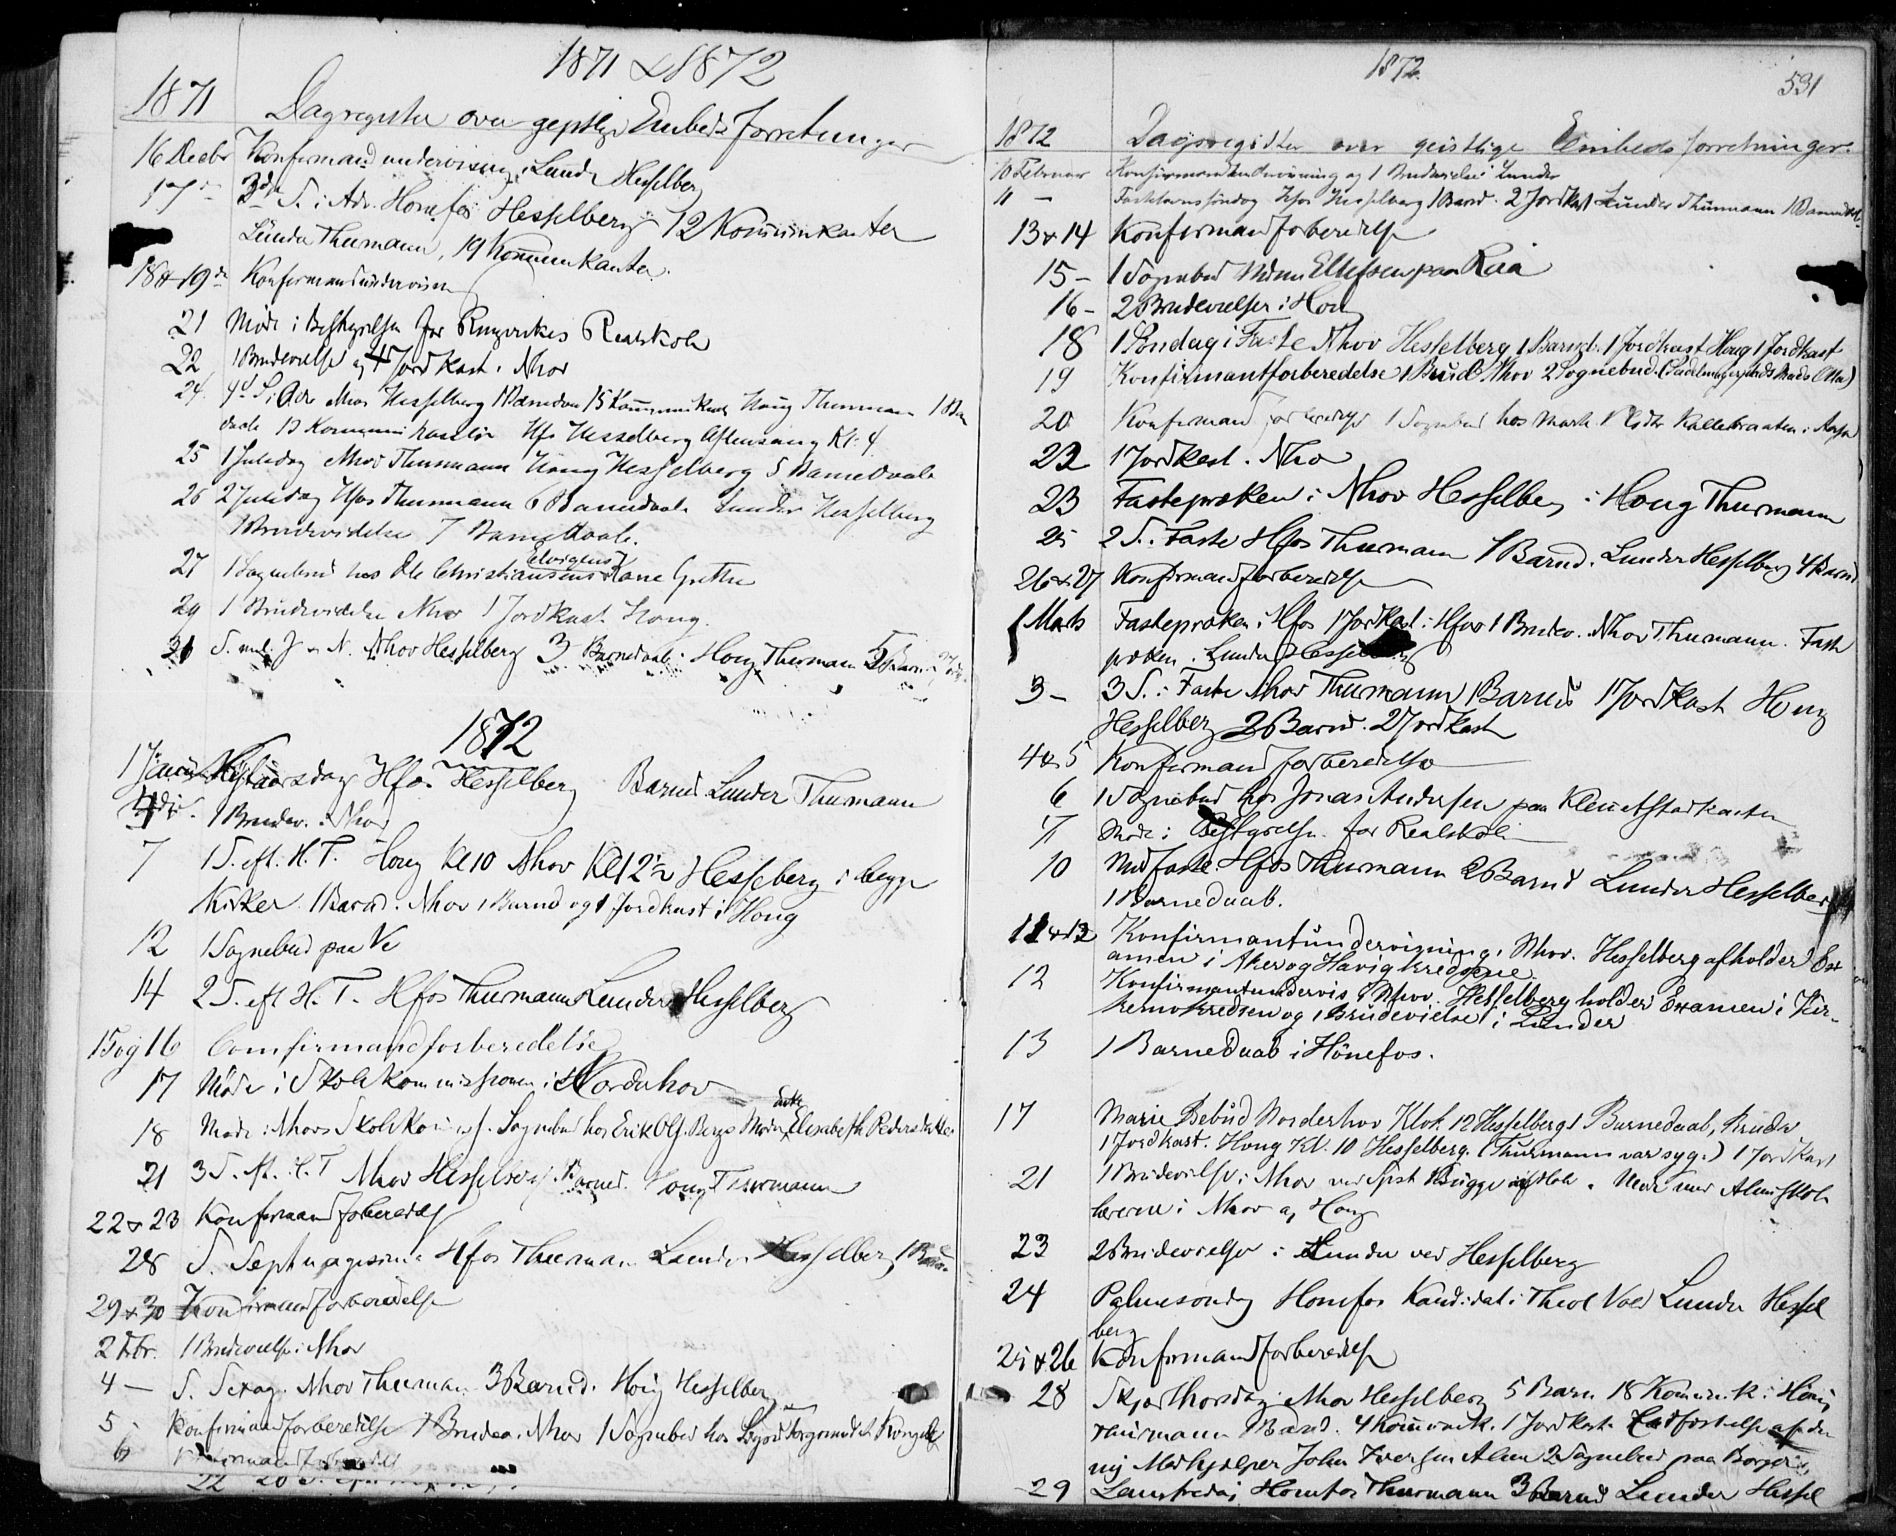 1871 & 1872
1871
Dagregister over geistlige Embeds forretninger
16 Decbr Konfirmandundervisning i Lunder Hesselberg
17 d 3d S. i Adv. Hønefos Hesselberg 12 Kommunikanter
Lunder Thurmann, 19 Kommunikanter.
18 & 19 de Konfirmandundervisn
21 Møde i Bestyrelsen for Ringerikes Realskole
22 1 Brudevielse og 4 Jordkast. Nhov
24. 4d S. i Adv. Nhov Hesselberg 15 Kommunikant Houg Thurmann
daab 13 Kommunikanter Hfos Hesselberg Aftensang Kl. 4
25 1 Juledag Nhov Thurmann Houg Hesselberg 5 Barnedaab
26 2 Juledag Hfos Thurmann 6 Barnedaab Lunder Hesselberg
1 Brudevielse 7 Barnedaab.
27 1 Sognebud hos Ole Christiansens Kone Grethe
29 1 Brudevielse Nhov 1 Jordkast Houg.
31 S. ml. J & N. Nhov Hesselberg 3 Barnedaab. Houg Thurmann 5 Barn
1872
1 Januar Nytaarsdag Hfos Hesselberg Barned Lunder Thurmann
4de 1 Brudev. i Nhov
7 1 S. eft. H. T. Houg Kl 10 Nhov Kl 12½ Hesselberg i begge
Kirker. 1 Barnd. Nhov 1 Barnd og 1 Jordkast i Houg
12 1 Sognebud paa Ve
14 2 S. eft H. T. Hfos Thurmann Lunder Hesselberg
15 og 16 Comfirmandforberedelse
17 Møde i Skolekommissionen i Norderhov
18 Møde i Nhovs Skolekomiss. Sognebud hos Erik Ols. Bergs Moder Elisabeth Pedersdatter
21 3 S. eft. H. T Nhov Hesselberg. Barned. Houg Thurmann
22 & 23 Konfirmandforberedels
28 S. Septuagesima Hfos Thurmann Lunder Hesselberg 1 Barn
29 & 30 Konfirmandforberedelse
2 Febr. 1 Brudevielse i Nhov
4 — S. Sexag. Nhov Thurman 3 Barnd. Houg Hesselberg
5 - Konfirmandforberedelse 1 Brudev. Nhov 1 Sognebud hos
6 Konfirmandforberedels
1872.
531
1872 Dagsregister over geistlige Embeds forretninger.
10 Februar Konfirmandundervisning og 1 Brudevielse i Lunder
11 — Fastelavnssöndag Hfos Hesselberg 1 Barnd. 2 Jordkast Lunder Thurmann 1 Barnedaab
13 & 14 Konfirmandforberedelse
15 — 1 Sognebud
16 - 2 Brudevielser i Houg
18 1 Søndag i Faste Nhov Hesselberg 1 Barned. 1 Jordkast Houg 1 Jordkast
19 Konfirmantforberedelse 1 Brud. Nhov 2 Sognebud.
20 Konfirmandforberedelse 1 Sognebud hos
22 1 Jordkast. Nhov
23 Fastepræken i Nhov Hesselberg i Houg Thurmann
25 2 S. i Faste Hfos Thurmann 1 Barnd. Lunder Hesselberg 4 Barnd
26 & 27 Konfirmandforberedelse
1 Marts Fastepræken i Hfos 1 Jordkast i Hfos 1 Brudev. Nhov Thurmann. Faste
præken i Lunder Hesselberg
3 — 3 S. i Faste Nhov Thurmann 1 Barnd 1 Jordkast Houg
Hesselberg 2 Barnd. 2 Jordkast
4 & 5 Konfirmandforberedelse
6 1 Sognebud hos Jonas Andersen paa
7 Møde i Bestyrelsen for Realskolen
10 Midfaste Hfos Thurmann 2 Barnd Lunder Hesselberg
1 Barnedaab.
11 & 12 Konfirmantundervisning i Nhov. Hesselberg afholder Ex
amen i Aker og Havigkredsene.
12 Konfirmantundervis. i Nhov. Hesselberg holder Examen i Kir-
kemokredsen og 1 Brudevielse i Lunder
13 1 Barnedaab i Hönefos.
17 Marie Bebud Norderhov Klok. 12 Hesselberg 1 Barnedaab, Brudev
1 Jordkast. Houg Kl. 10 Hesselberg. (Thurmann var syg.) 1 Jordkast
21 1 Brudevielse i Nhov ved Pst Bugge. Møde med Almuskole
lærerne i Nhov og Houg
23 2 Brudevielser i Lunder ved Hesselberg
24 Palmesondag Honefos Kandidat i Theol Vold Lunder Hessel
berg
25 & 26 Konfirmandforberedelse
28 Skjærthorsdag Nhov Hesselberg 5 Barn 18 Kommunik. i Houg
Thurmann Barnd. 4 Komunik. 1 Jordkast
Medhjælper John Iversen Alm 2 Sognebud paa
29 Langfredag Honefos Thurmann 3 Barnd Lunder Hessel